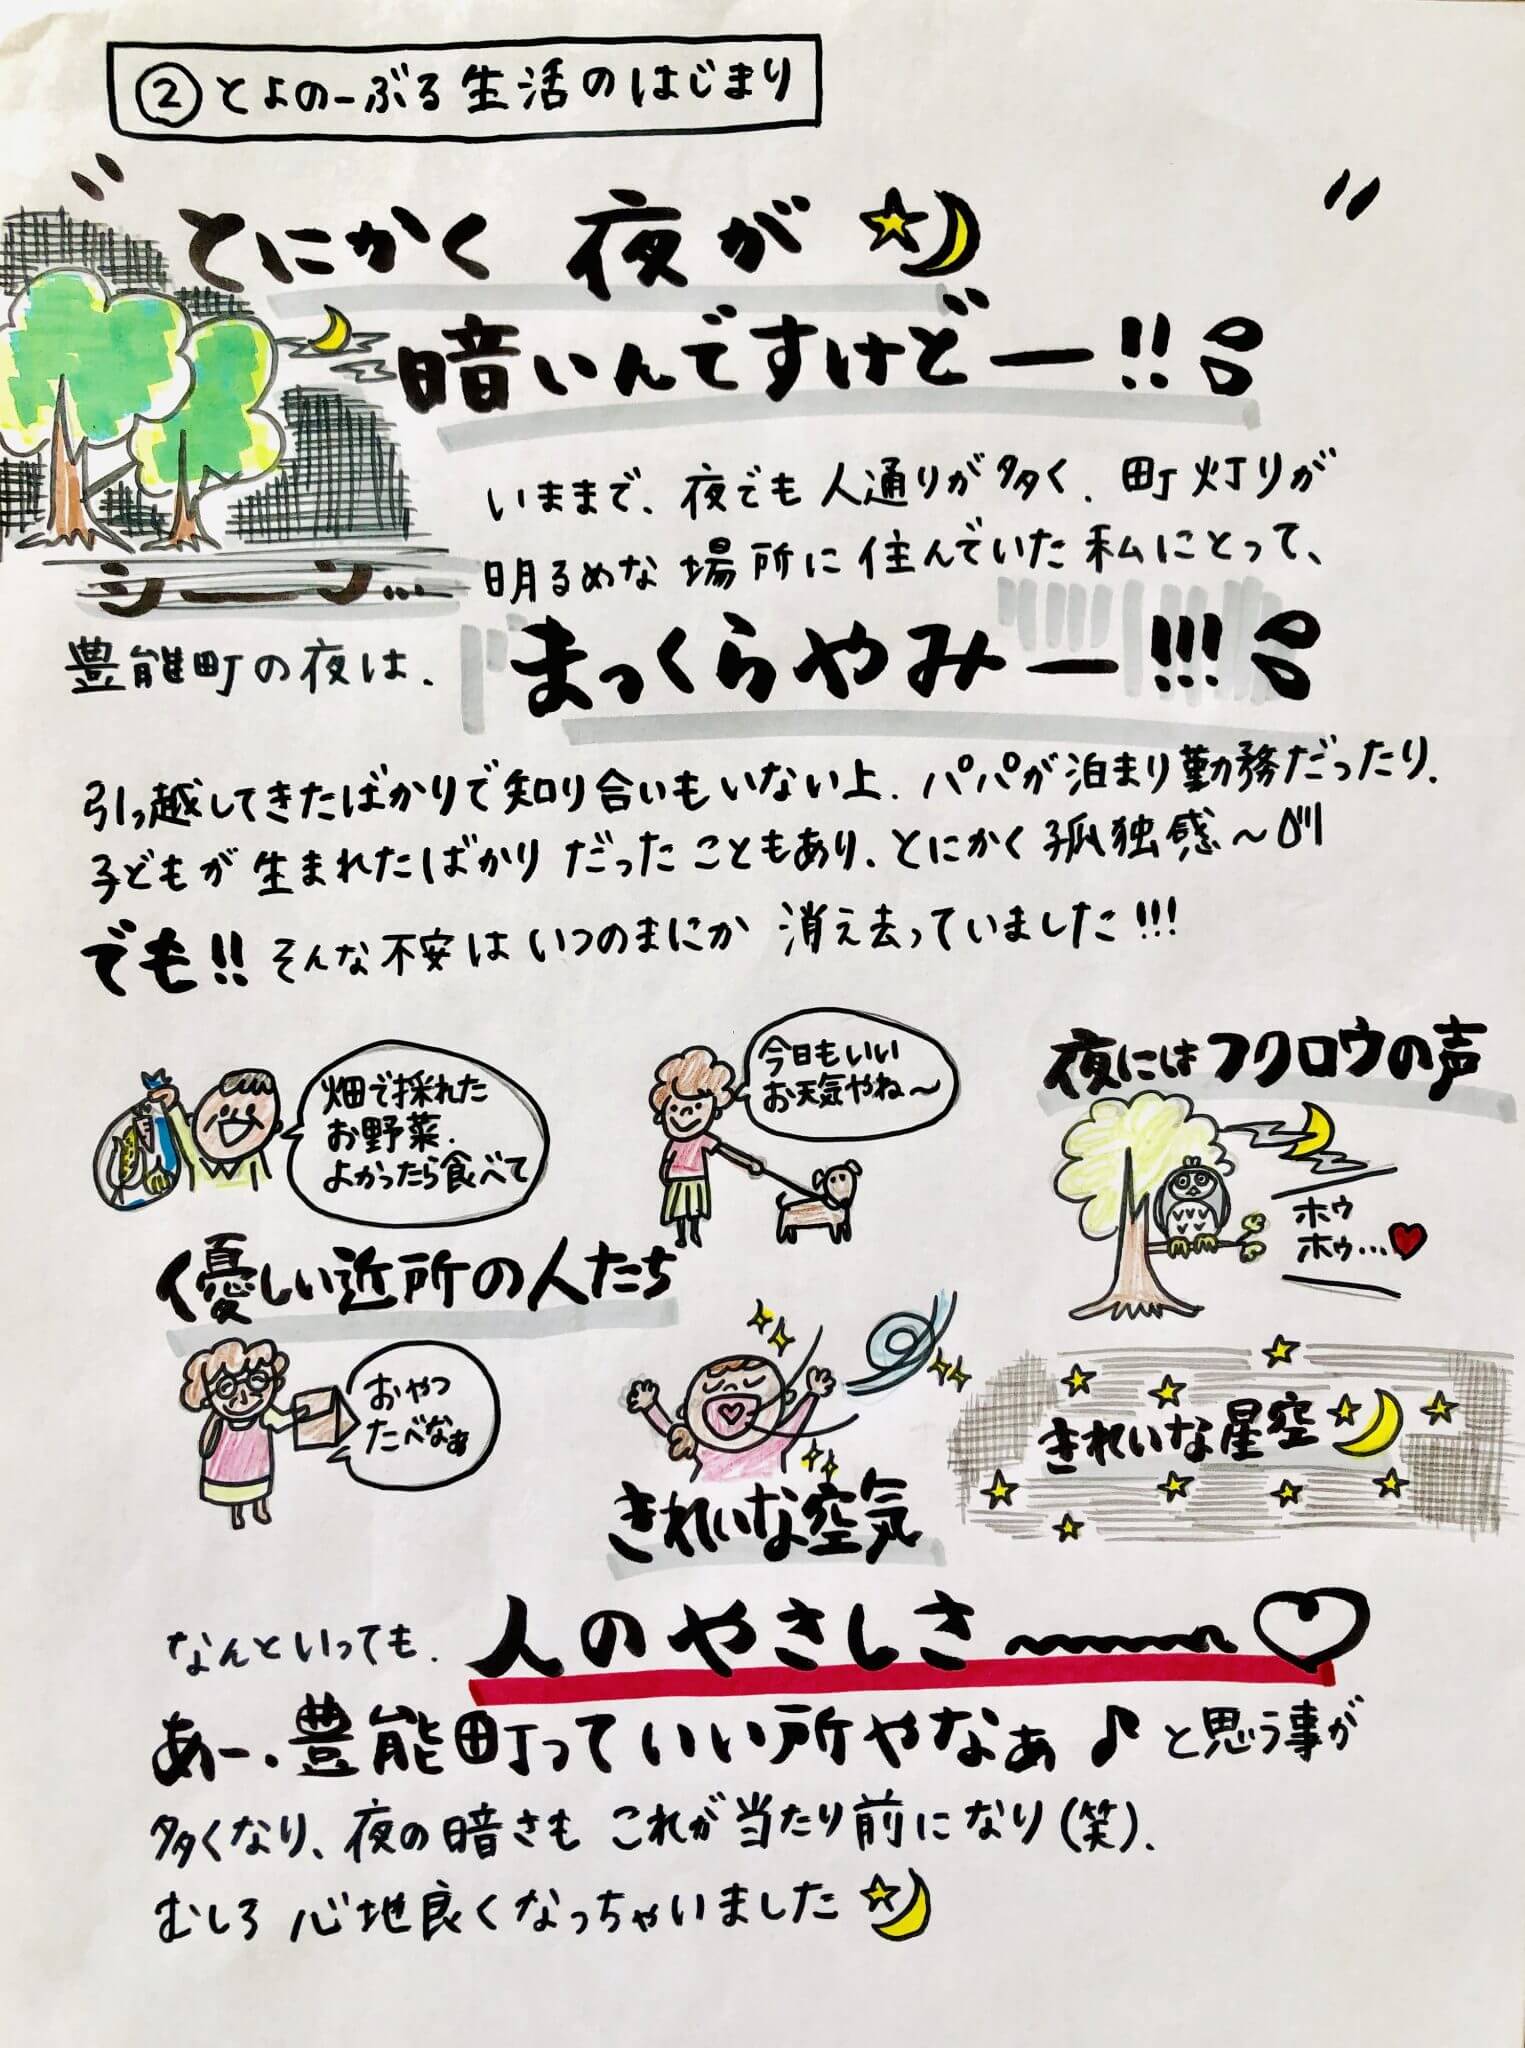 ②とよのーぶる生活のはじまり
"とにかく 夜が
暗いんですけどー!!"
シーン...
いままで、夜でも人通りが多く、町灯りが
明るめな場所に住んでいた私にとって、
豊能町の夜は、まっくらやみー!!!
引っ越してきたばかりで知り合いもいない上、パパが泊まり勤務だったり、
子どもが生まれたばかりだったこともあり、とにかく孤独感〜
でも!!そんな不安はいつのまにか消え去っていました!!!
畑で採れた
お野菜、
よかったら食べて
今日もいい
お天気やね〜
夜にはフクロウの声
ホゥ
ホゥ...
優しい近所の人たち
おやつ
たべなぁ
きれいな空気
きれいな星空
なんといっても、人のやさしさ〜
あー、豊能町っていい所やなぁ♪と思う事が
多くなり、夜の暗さもこれが当たり前になり(笑)、
むしろ心地良くなっちゃいました